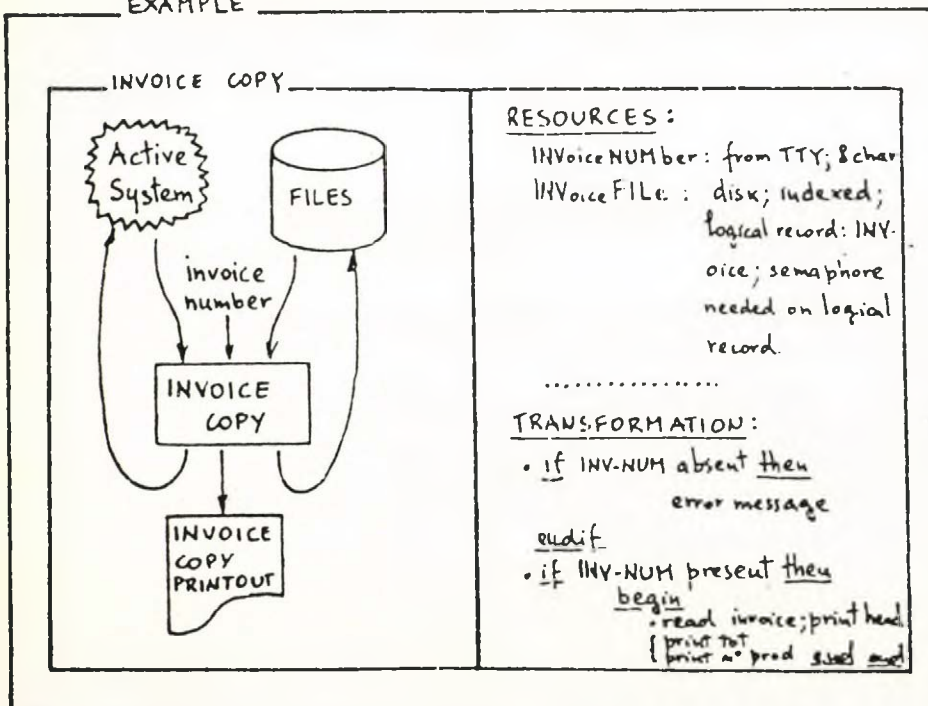 EXAMPLE
INVOICE COPY
Active
System
FILES
invoice
number
INVOICE
COPY
INVOICE
COPY
PRINTOUT
RESOURCES:
INVoiceNUMber: from TTY; 8char
INVoiceFILe: disk; indexed;
logical record: INV-
oice; semaphore
needed on logical
record.
.................
TRANSFORMATION:
• if INV-NUM absent then
error message
endif
• if INV-NUM present then
begin
• read invoice; print head.
print tot
print n° prod